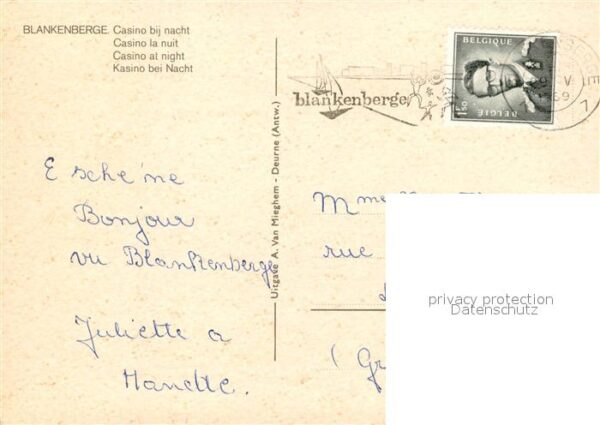 BLANKENBERGE. Casino bij nacht
Casino la nuit
Casino at night
Kasino bei Nacht
blankenberge
BELGIQUE
1,50
BELGIË
V
7
E sche'ne
Bonjour
vu Blankenberge
Juliette a
Manette.
Uitgave A. Van Mieghem - Deurne (Antw.)
Mme
rue
privacy protection
Datenschutz